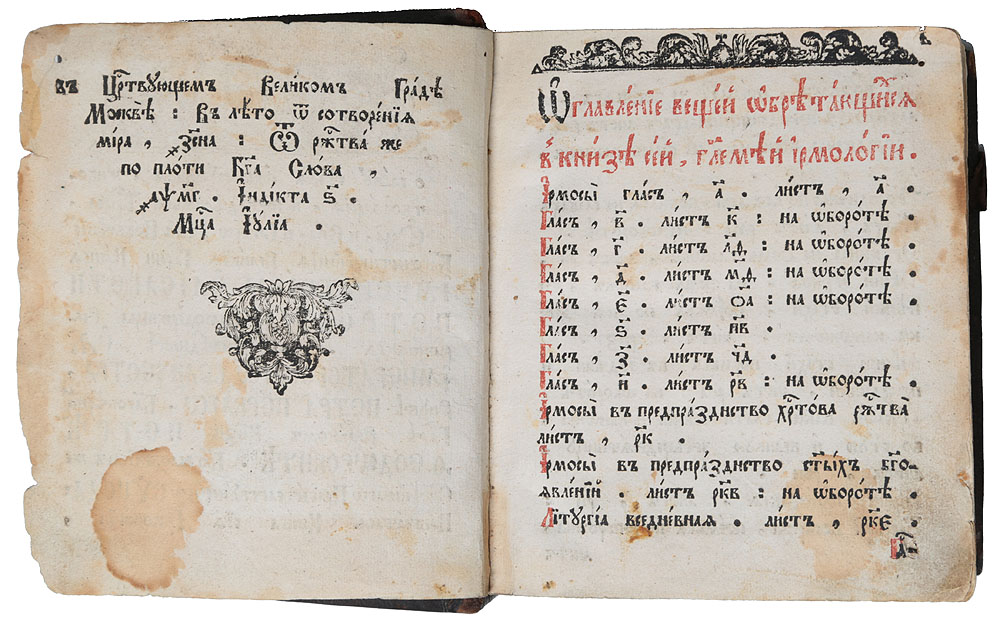 въ Црⷭ҇твующемъ Вели́комъ Гра́дѣ
Москвѣ̀ : Въ лѣ́то ѿ сотворе́нїѧ
мі́ра , ҂зс҃на : Ѿ ржⷭ҇тва̀ же
по пло́ти Бг҃а Сло́ва ,
҂аѱм҃г . І҆нді́кта ѕ҃ .
Мцⷭ҇а І҆у́лїа .
Ѡ҆главле́нїе веще́й ѡ҆брѣта́ющихсѧ
в̾ кни́зѣ се́й , гл҃емѣ́й І҆рмоло́гїи .
І҆рмосы̀ гла́съ , а҃ . ли́стъ , а҃ .
Гла́съ , в҃ . ли́стъ к҃ : на ѡ҆боро́тѣ .
Гла́съ , г҃ . ли́стъ л҃д : на ѡ҆боро́тѣ .
Гла́съ , д҃ . ли́стъ м҃д : на ѡ҆боро́тѣ .
Гла́съ , є҃ . ли́стъ о҃а : на ѡ҆боро́тѣ .
Гла́съ , ѕ҃ . ли́стъ п҃в .
Гла́съ , з҃ . ли́стъ ч҃д .
Гла́съ , и҃ . ли́стъ р҃в : на ѡ҆боро́тѣ .
І҆рмосы̀ въ предпра́зднство хрⷭ҇то́ва ржⷭ҇тва̀
ли́стъ , р҃к .
І҆рмосы̀ въ предпра́зднство ст҃ы́хъ бг҃о-
ѧвле́нїй . ли́стъ рк҃в : на ѡ҆боро́тѣ .
Літургі́а вседне́внаѧ . ли́стъ , рк҃є .